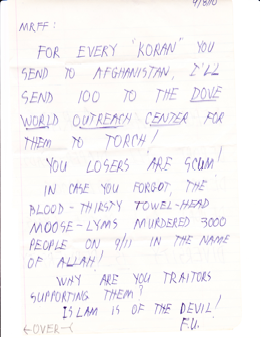 9/8/10
MRFF:
FOR EVERY "KORAN" YOU
SEND TO AFGHANISTAN, I'LL
SEND 100 TO THE DOVE
WORLD OUTREACH CENTER FOR
THEM TO TORCH!
YOU LOSERS ARE SCUM!
IN CASE YOU FORGOT, THE
BLOOD-THIRSTY TOWEL-HEAD
MOOSE-LYMS MURDERED 3000
PEOPLE ON 9/11 IN THE NAME
OF ALLAH!
WHY ARE YOU TRAITORS
SUPPORTING THEM?
ISLAM IS OF THE DEVIL!
←OVER→ F.U.